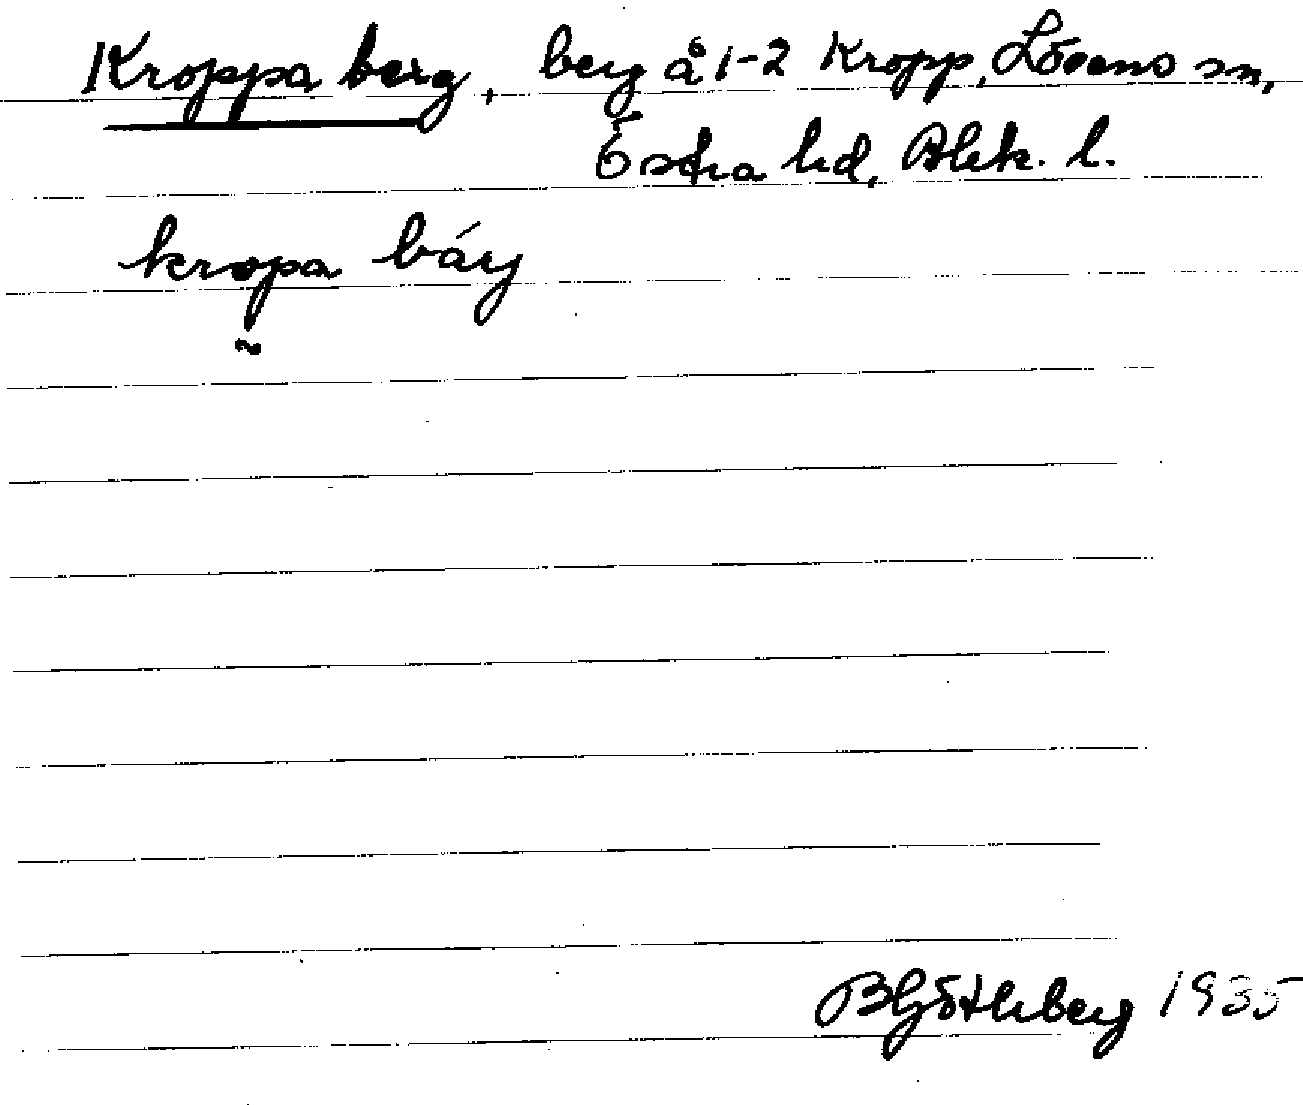 Kroppa berg, berg å 1-2 Kropp, Lösens sn,
Östra hd, Blek. l.
kropa bárj
BGöthberg 1935